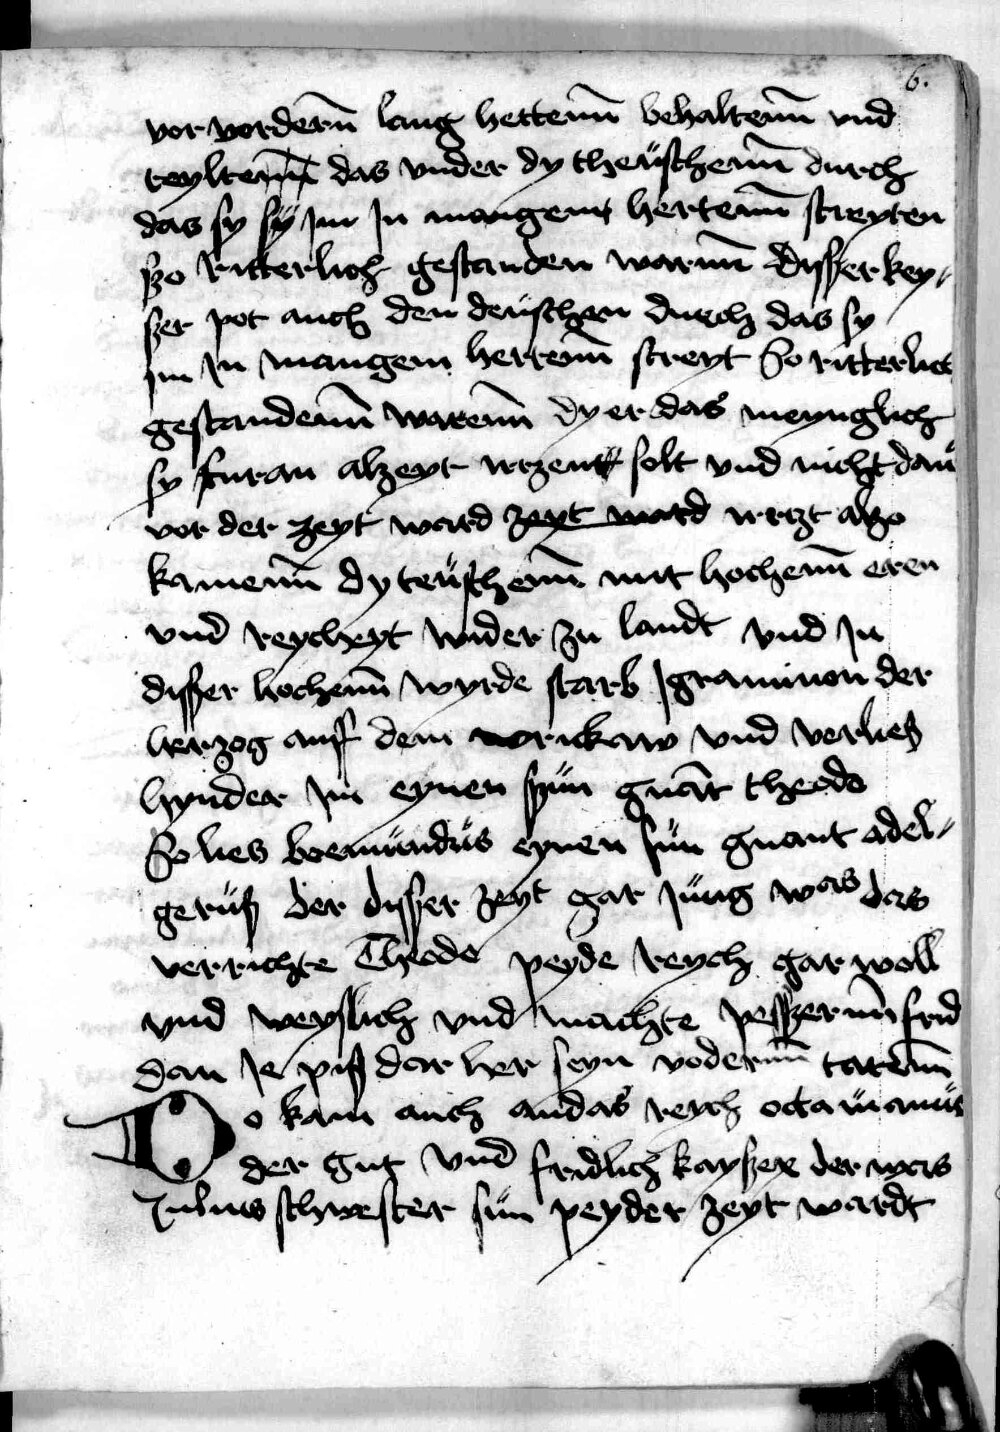 6.
vor vordern̄ lang hettenn̄ behaltenn̄ vnd
teyltenn̄ das vnder dy theüschenn̄ durch
das sy sÿ Im In mangem hertenn̄ streyten
szo Ritterlich gestanden warnn̄ disszer key-
szer pot auch den deüschen durch das sy
Im In mangem hertenn̄ streyt So ritterlich
gestandenn̄ warenn̄ dy er das meynglich
sy furan alzeyt solt vnd nicht dan̄
vor der zeyt ward zeyt ward irrtzt alszo
kamenn̄ dy teüschenn̄ mit hochenn̄ eren
vnd reycheyt wider zu landt vnd In
disszer hochenn̄ wyrde starb Igraminon der
herzog auff dem norickaw vnd verlies
hynder Im eynen szün gnāt theodo
So lies boemündüs eynen sün gnant adel-
gerüsz der disszer zeyt gar Jüng was das
verrichte Theodo peyde reych gar woll
vnd weyslich vnd machte pesszernn̄ frid
dan Ie pisz dar her seyn vodernn̄ tatenn̄
Do kam auch an das reych octauianüs
der gut vnd fridlich kayszer der was
Iulius schwester sün peyder zeyt wardt